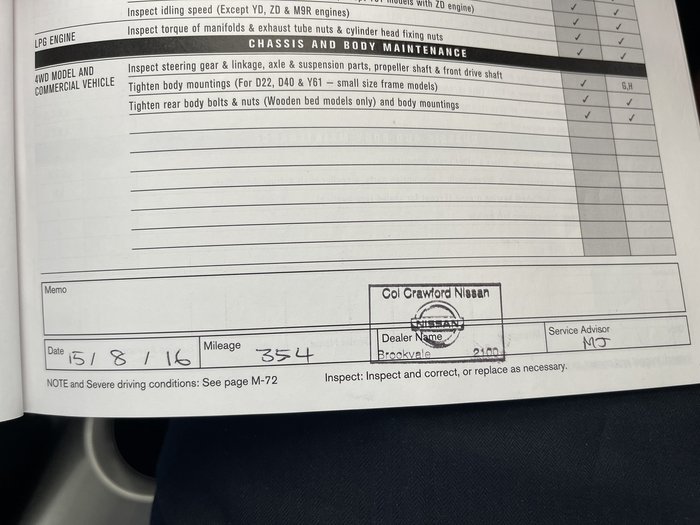 models with ZD engine)
Inspect idling speed (Except YD, ZD & M9R engines) ✓
✓
LPG ENGINE Inspect torque of manifolds & exhaust tube nuts & cylinder head fixing nuts ✓ ✓
CHASSIS AND BODY MAINTENANCE ✓ ✓
4WD MODEL AND
COMMERCIAL VEHICLE
Inspect steering gear & linkage, axle & suspension parts, propeller shaft & front drive shaft ✓ G,H
Tighten body mountings (For D22, D40 & Y61 – small size frame models) ✓ ✓
Tighten rear body bolts & nuts (Wooden bed models only) and body mountings ✓ ✓
Memo
Col Crawford Nissan
NISSAN
Date 15 / 8 / 16 Mileage 354 Dealer Name Service Advisor
MJ
Brookvale 2100
NOTE and Severe driving conditions: See page M-72 Inspect: Inspect and correct, or replace as necessary.